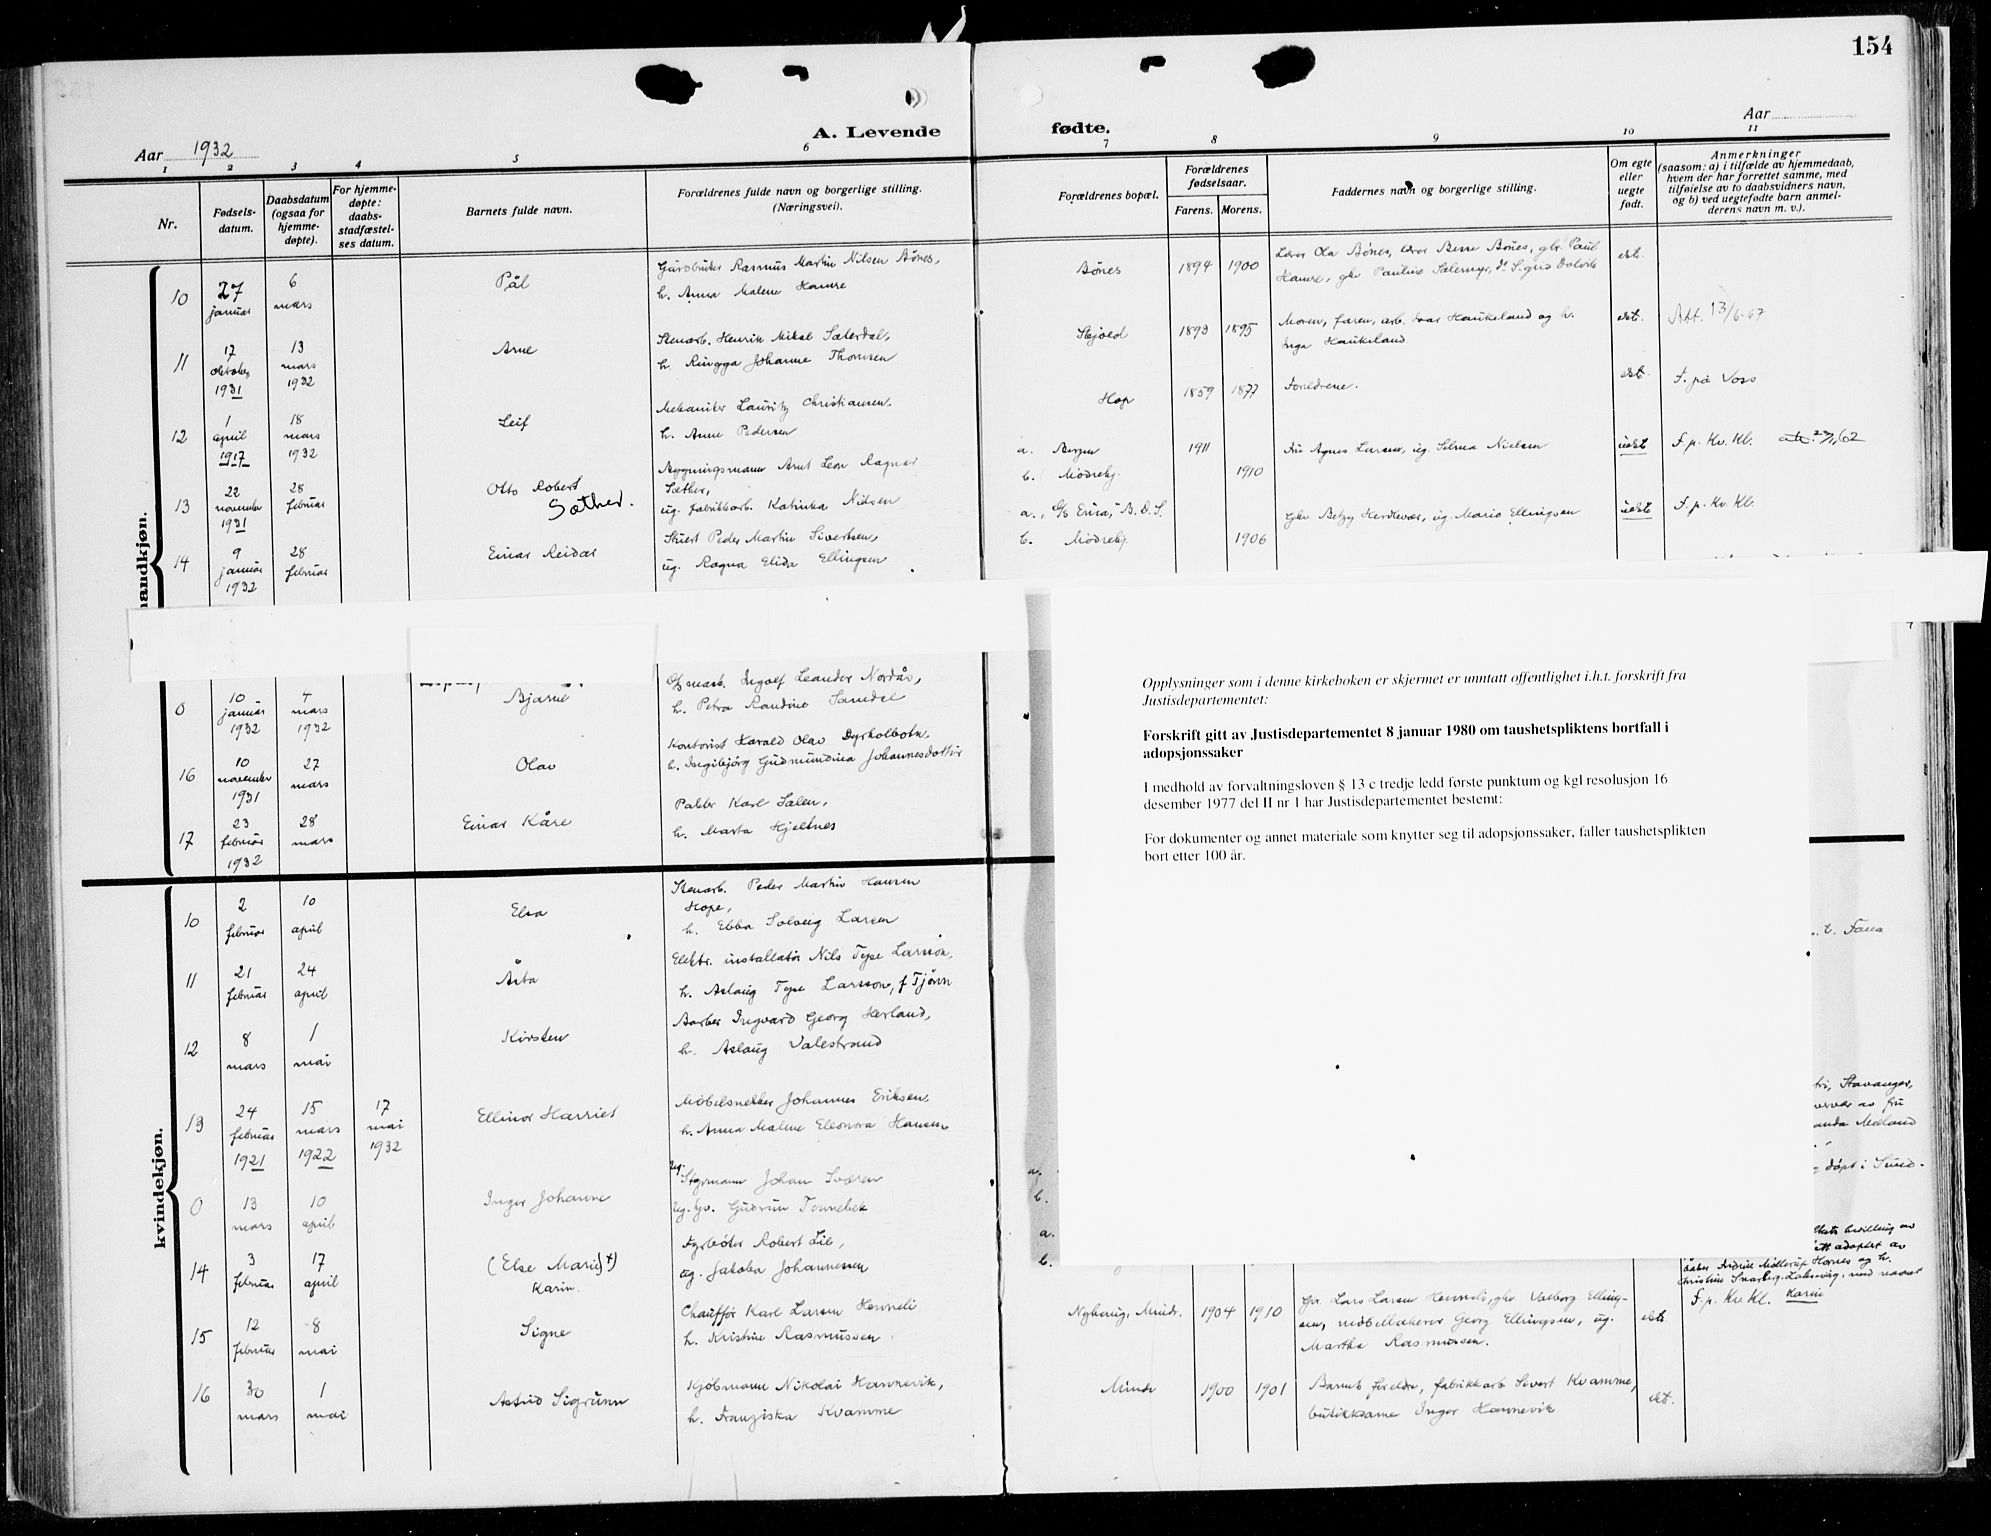 154
A. Levende fødte.
Aar 1932
Aar
1 2 3 4 5 6 7 8 9 10 11
Nr.
Fødsels-
datum.
Daabsdatum
(ogsaa for
hjemme-
døpte).
For hjemme-
døpte:
daabs-
stadfæstel-
ses datum.
Barnets fulde navn.
Forældrenes fulde navn og borgerlige stilling.
(Næringsvei).
Forældrenes bopæl.
Forældrenes
fødselsaar.
Farens. Morens.
Faddernes navn og borgerlige stilling.
Om egte
eller
uegte
født.
Anmerkninger
(saasom: a) i tilfælde av hjemmedaab,
hvem der har forrettet samme, med
tilføielse av to daabsvidners navn,
og b) ved uegtefødte barn anmel-
derens navn m. v.).
mandkjøn.
10
27
januar
6
mars
Pål
Gårdbruker Rasmus Martin Nilsen Bønes,
h. Anna Malene Hamre
Bønes
1894 1900
Lærer Ola Bønes, lærer Berse Bønes, gbr. Paul
Hamre, ghv. Pauline Salemyr, Signe Dolvik
ekt.
11
17
oktober
1931
13
mars
1932
Arne
Stenarb. Henrik Mikal Sæterdal,
h. Ringga Johanne Thomsen
Skjold
1893 1895
Moren, faren, arb. Ivar Haukeland og h.
Inga Haukeland
ekt.
Att. 13/6-67
12
1
april
1917
18
mars
1932
Leif
Mekaniker Lauritz Christiansen,
h. Anne Pedersen
Hop
1859 1877
Foreldrene.
ekt.
F. på Voss
13
22
november
1931
28
februar
Otto Robert
Sæther.
Bygningsmann Arnt Leon Ragnar
Sæther,
ug. fabrikkarb. Katinka Nilsen
a. Bergen
b. Mødrehj.
1911
1910
Fru Agnes Larsen, ug. Selma Nielsen
uekt
F. p. Kv. Kl.
14
9
januar
1932
28
februar
Einar Reidar
Stuert Peder Martin Sivertsen,
ug. Ragna Elida Ellingsen
a., D/S Erica, B. D. S.
b. Mødrehj.
1906
Ghv. Betzy Herdlevær, ug. Marie Ellingsen
uekt
F. p. Kv. Kl.
0
10
januar
1932
mars
1932
Bjarne
Off mask. Ingolf Leander Nordås,
h. Petra Randine Sandal
16
10
november
1931
27
mars
Olav
Kontorist Harald Olav Dyrkolbotn,
h. Ingibjörg Gudmundina Johannesdottir
17
23
februar
1932
28
mars
Einar Kåre
Pakker Karl Salen,
h. Marta Hjeltnes
Opplysninger som i denne kirkeboken er skjermet er unntatt offentlighet i.h.t. forskrift fra
Justisdepartementet:
Forskrift gitt av Justisdepartementet 8 januar 1980 om taushetspliktens bortfall i
adopsjonssaker
I medhold av forvaltningsloven § 13 c tredje ledd første punktum og kgl resolusjon 16
desember 1977 del II nr 1 har Justisdepartementet bestemt:
For dokumenter og annet materiale som knytter seg til adopsjonssaker, faller taushetsplikten
bort etter 100 år.
kvindekjøn.
10
2
februar
10
april
Elsa
Stenarb. Peder Martin Hansen
Hope,
h. Ebba Solveig Larsen
Fana
11
21
februar
24
april
Åsta
Elektr. installatør Nils Teje Larsson,
h. Aslaug Teje Larsson, f Tjønn
12
8
mars
1
mai
Kirsten
Barber Ingvard Georg Herland,
h. Aslaug Valestrand
13
24
februar
1921
15
mars
1922
17
mai
1932
Ellinor Harriet
Møbelsnekker Johannes Eriksen,
h. Anna Malene Eleonora Hansen
Stavanger,
av fru
Mæland
0
13
mars
10
april
Inger Johanne
ug. Styrmann Johan Sværen
ug. hv. Gudrun Tennebek
a.
b.
døpt i Sund-
14
3
februar
17
april
(Else Marie) †)
Karin
Fyrbøter Robert Lie,
ug. Jakoba Johannessen
a.
b.
bevilling av
adoptert av
Hornes og h.
med navnet
Karin
15
12
februar
8
mai
Signe
Chauffør Karl Larsen Henneli
h. Kristine Rasmussen
Nyhaug, Minde.
1904 1910
Gv. Lars Larsen Henneli, ghv. Valborg Elling-
sen, møbelhakerer Georg Ellingsen, ug.
Martha Rasmussen.
ekt.
F. p. Kv. Kl.
16
30
mars
1
mai
Astrid Sigrunn
Kjøbmann Nikolai Hannevik,
h. Franziska Kvamme
Minde
1900 1901
Barnets foreldre, fabrikkarb Sivert Kvamme,
butikkdame Inger Hannevik
ekt.